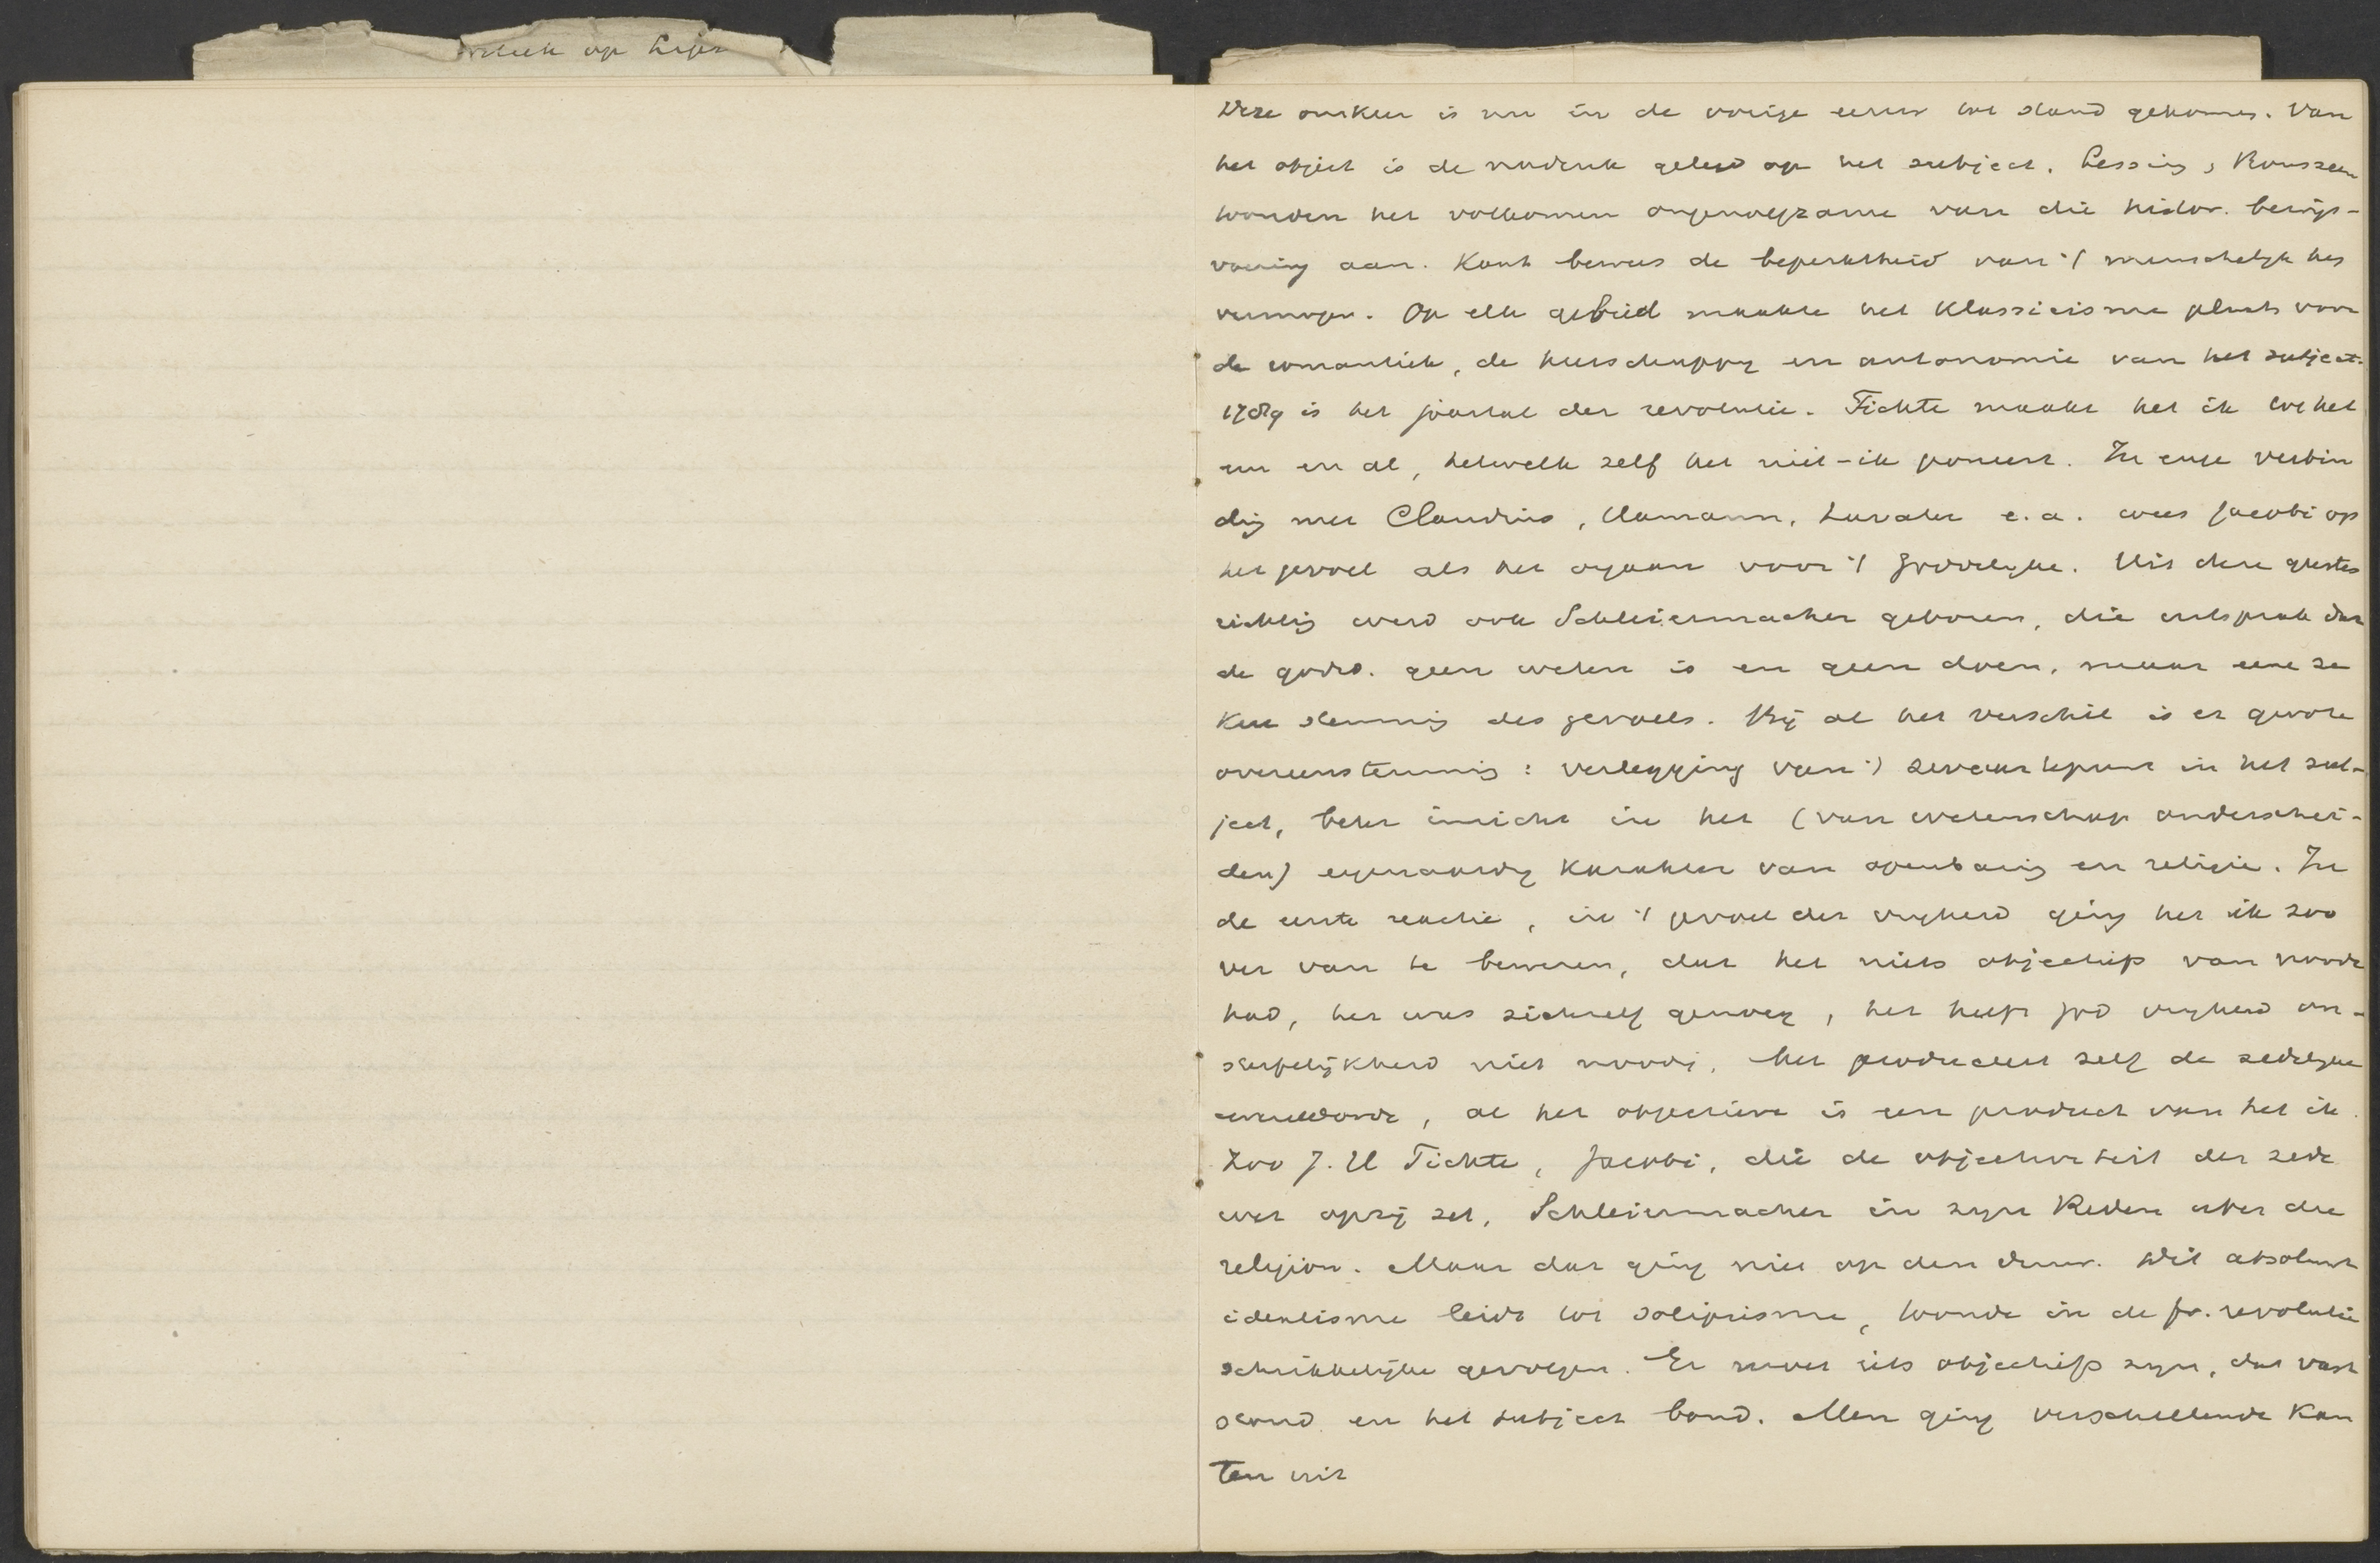 op
Deze omkeer is nu in de vorige eeuw tot stand gekomen. Van
het object is de nadruk gelegd op het subject. Lessing, Rousseau
toonden het volkomen ongenoegzame van die histor. bewijs-
voering aan. Kant bewees de beperktheid van 't menschelijk ken
vermogen. Op elk gebied maakte het klassicisme plaats voor
de romantiek, de heerschappy en autonomie van het subject.
1789 is het jaartal der revolutie. Fichte maakt het ik tot het
een en al, hetwelk zelf het niet-ik poneert. In enge verbin
ding met Claudius, Hamann, Lavater e.a. wees Jacobi op
het gevoel als het orgaan voor 't goddelyke. Uit deze geestes
richting werd ook Schleiermacher geboren, die uitsprak dat
de godsd. geen weten is en geen doen, maar eene ze
kere stemming des gevoels. Bij al het verschil is er groote
overeenstemming: verlegging van 't zwaartepunt in het sub-
ject, beter inzicht in het (van wetenschap onderschei-
den) eigenaardig karakter van openbaring en religie. In
de eerste reactie, in 't gevoel der vryheid ging het ik zoo
ver van te beweren, dat het niets objectiefs van noode
had, het was zichzelf genoeg, het heeft God vryheid on-
sterfelijkheid niet noodig, het produceert zelf de zedelyke
wereldorde, al het objectieve is een product van het ik.
Zoo J. G Fichte, Jacobi, die de objectiviteit der zede
wet opzij zet, Schleiermacher in zyn Reden uber die
religion. Maar dat ging niet op den duur. Dit absoluut
idealisme leidt tot solipsisme, toonde in de fr. revolutie
schrikkelijke gevolgen. Er moet iets objectiefs zyn, dat vast
stond en het subject bond. Men ging verschillende kan
ten uit